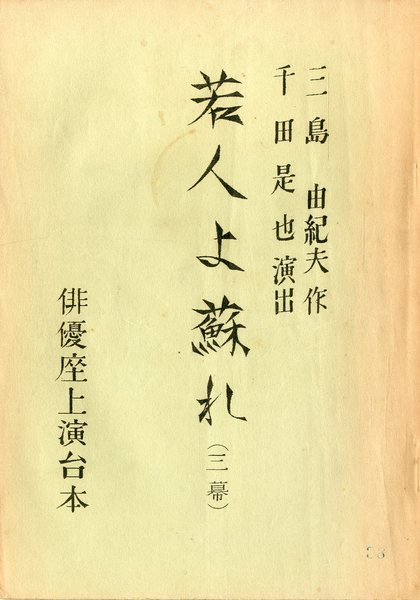 三島由紀夫作
千田是也演出
若人よ蘇れ
(三幕)
俳優座上演台本